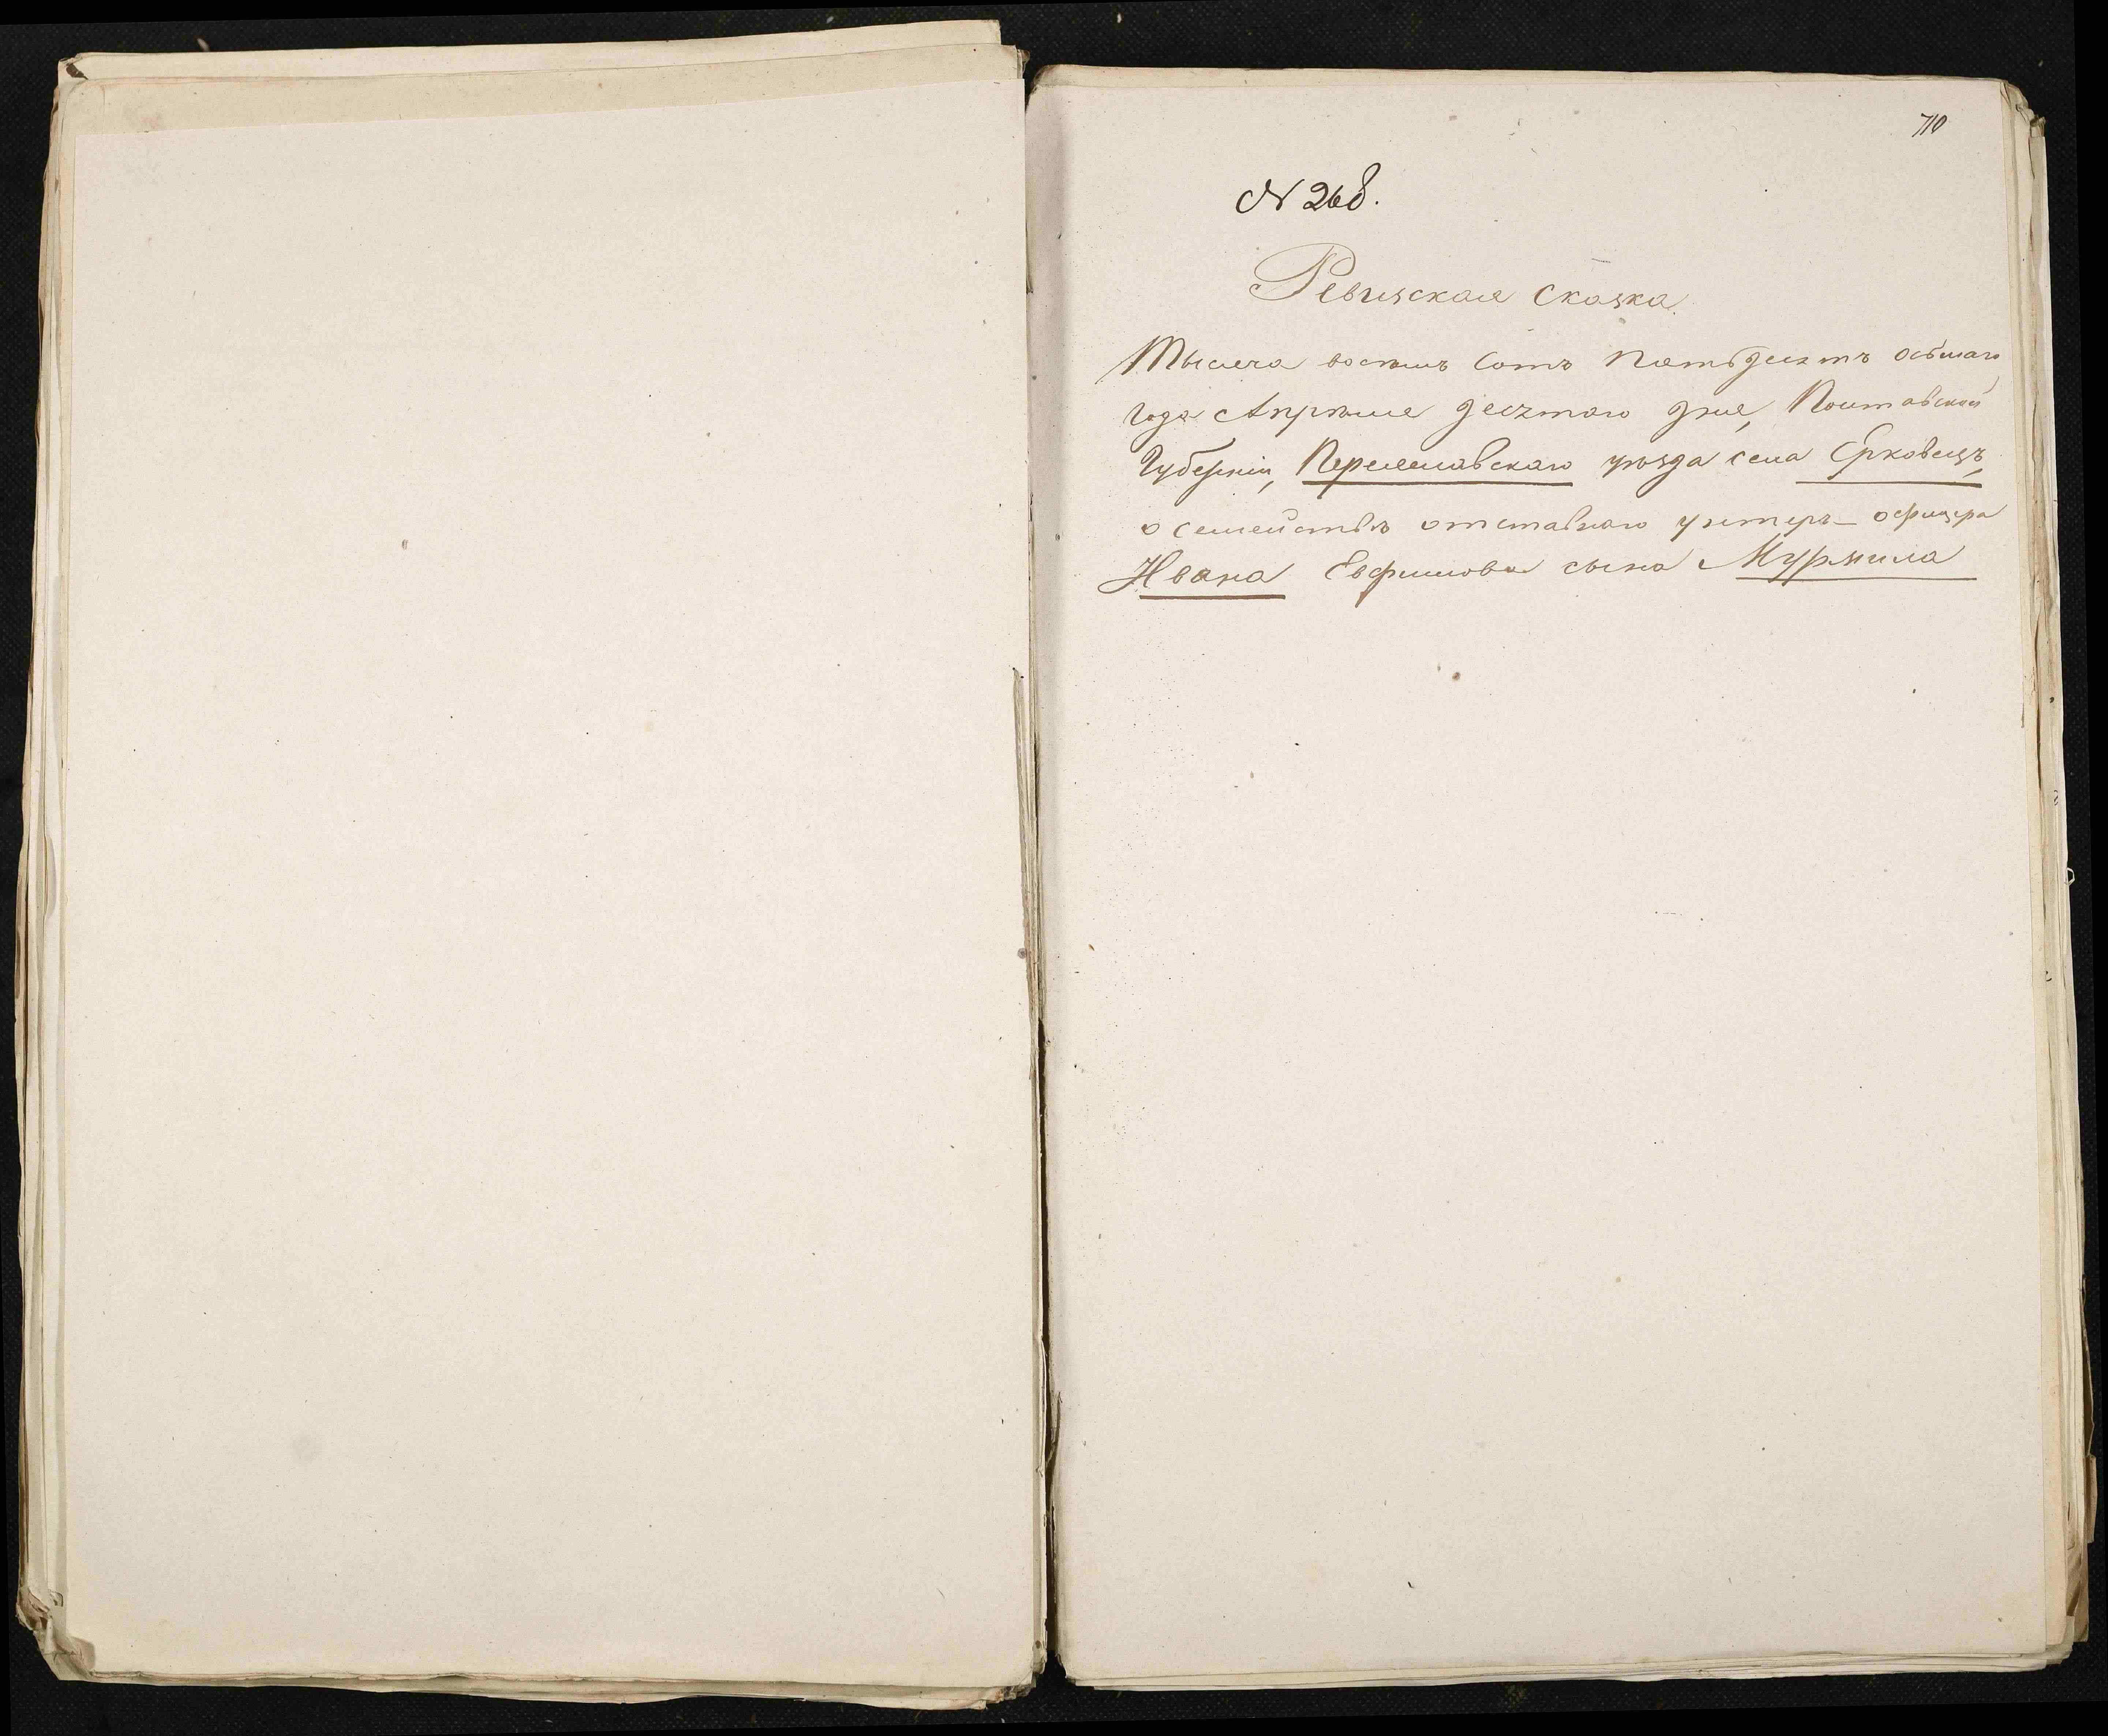 710
N 268.
Ревизская сказка.
Тысяча восемь сотъ пятьдесятъ осьмаго
года Апрѣля десятаго дня, Полтавской
Губерніи, Переяславскаго уѣзда села Ерковецъ,
о семействѣ отставнаго унтеръ-офицера
Ивана Евфимова сына Мурмила